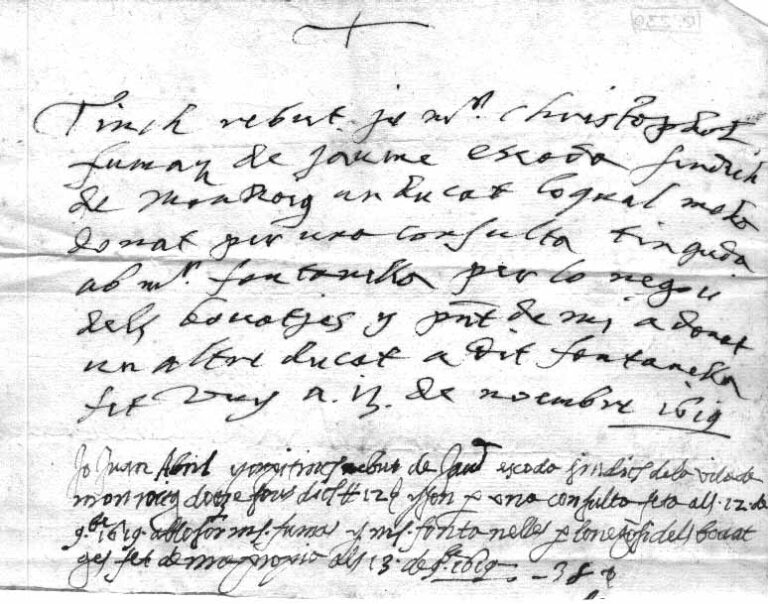 Tinch rebut jo mº. Christophol
fumas de Jaume escoda sindich
de Monroig un ducat loqual mela
donat per una consulta tinguda
ab mº. fontanella per lo negoci
dels bovatjes y pnt de mi a donat
un altre ducat a dit fontanella
fet vuy a. 13. de noembre 1619
Jo Juan Abril rebut de Jau escoda sindich dela vila de
monroig dotze sous dich # 12 ß y son p una consulta feta als .12. de
9.bre 1619. ms. fumas y ms. fontanelles p lo negosi dels bovat
ges fet de ma propia als 13 de 1619